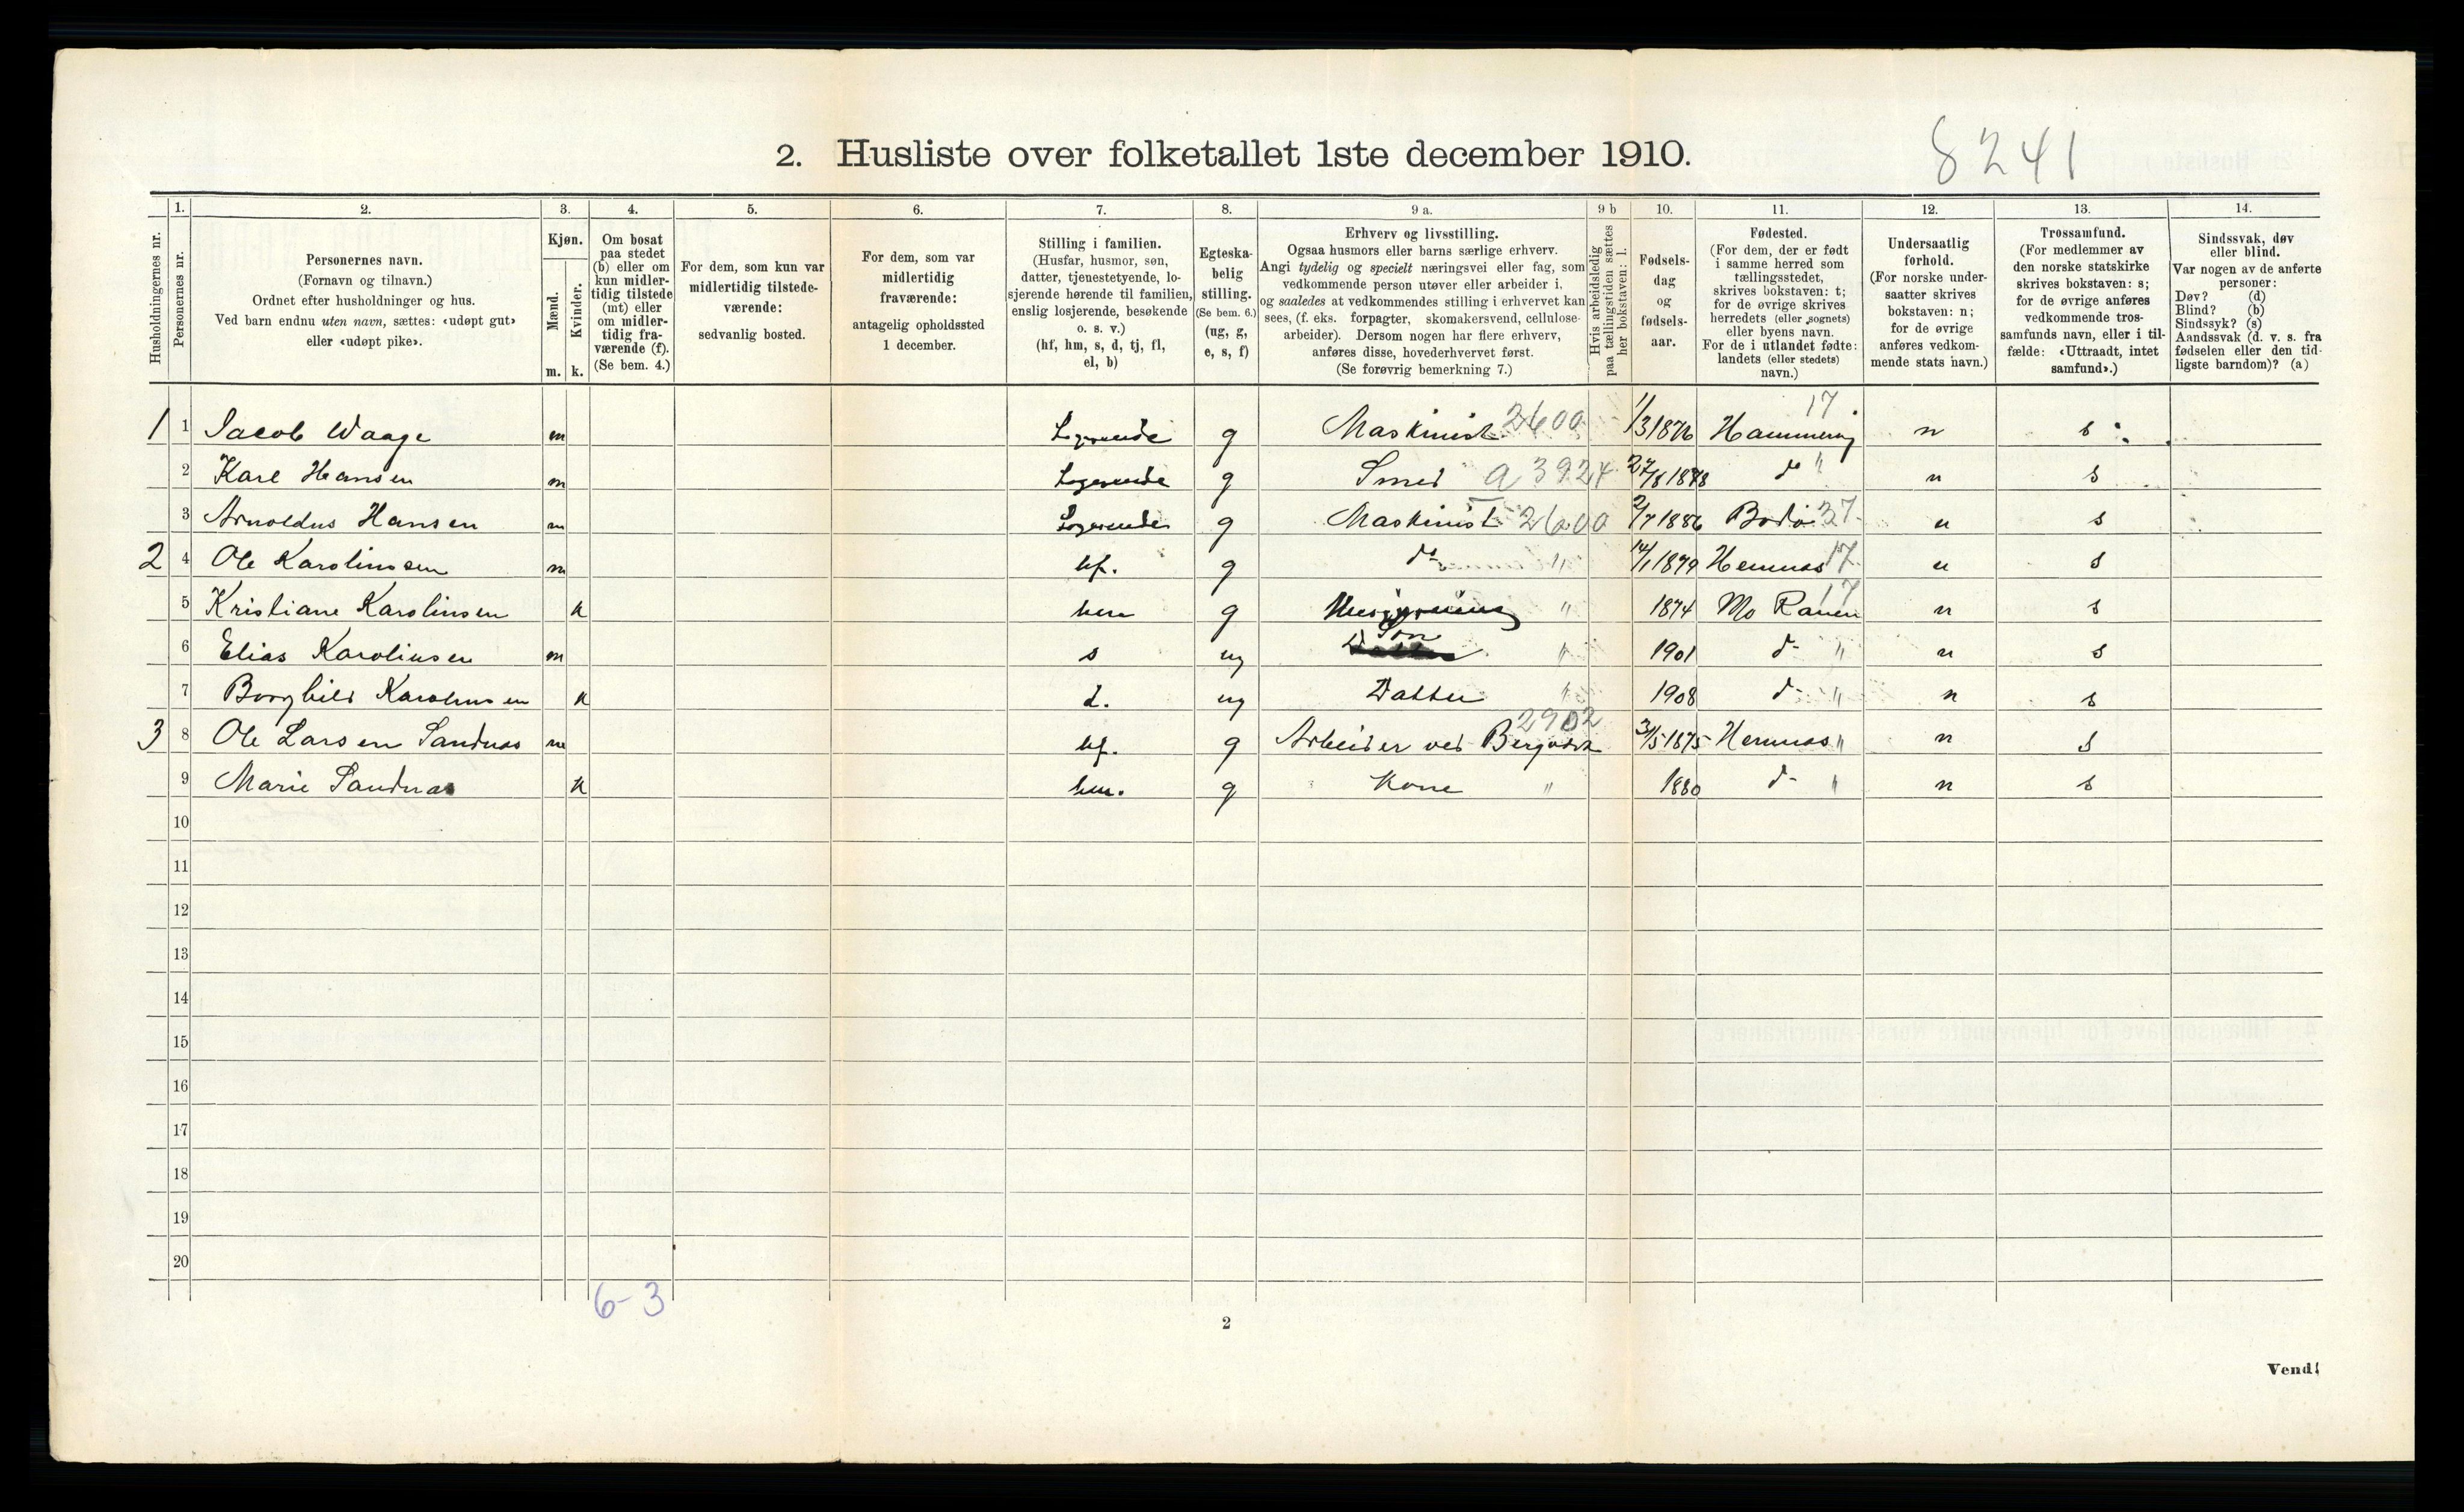 2. Husliste over folketallet 1ste december 1910.
8241
1. 2. 3. 4. 5. 6. 7. 8. 9 a. 9 b 10. 11. 12. 13. 14.
Husholdningernes nr.
Personernes nr.
Personernes navn.
(Fornavn og tilnavn.)
Ordnet efter husholdninger og hus.
Ved barn endnu uten navn, sættes: «udøpt gut»
eller «udøpt pike».
Kjøn.
Mænd.
Kvinder.
m. k.
Om bosat
paa stedet
(b) eller om
kun midler-
tidig tilstede
(mt) eller
om midler-
tidig fra-
værende (f).
(Se bem. 4.)
For dem, som kun var
midlertidig tilstede-
værende:
sedvanlig bosted.
For dem, som var
midlertidig
fraværende:
antagelig opholdssted
1 december.
Stilling i familien.
(Husfar, husmor, søn,
datter, tjenestetyende, lo-
sjerende hørende til familien,
enslig losjerende, besøkende
o. s. v.)
(hf, hm, s, d, tj, fl,
el, b)
Egteska-
belig
stilling.
(Se bem. 6.)
(ug, g,
e, s, f)
Erhverv og livsstilling.
Ogsaa husmors eller barns særlige erhverv.
Angi tydelig og specielt næringsvei eller fag, som
vedkommende person utøver eller arbeider i,
og saaledes at vedkommendes stilling i erhvervet kan
sees, (f. eks. forpagter, skomakersvend, cellulose-
arbeider). Dersom nogen har flere erhverv,
anføres disse, hovederhvervet først.
(Se forøvrig bemerkning 7.)
Hvis arbeidsledig
paa tællingstiden sættes
her bokstaven: l.
Fødsels-
dag
og
fødsels-
aar.
Fødested.
(For dem, der er født
i samme herred som
tællingsstedet,
skrives bokstaven: t;
for de øvrige skrives
herredets (eller sognets)
eller byens navn.
For de i utlandet fødte:
landets (eller stedets)
navn.)
Undersaatlig
forhold.
(For norske under-
saatter skrives
bokstaven: n;
for de øvrige
anføres vedkom-
mende stats navn.)
Trossamfund.
(For medlemmer av
den norske statskirke
skrives bokstaven: s;
for de øvrige anføres
vedkommende tros-
samfunds navn, eller i til-
fælde: «Uttraadt, intet
samfund».)
Sindssvak, døv
eller blind.
Var nogen av de anførte
personer:
Døv? (d)
Blind? (b)
Sindssyk? (s)
Aandssvak (d. v. s. fra
fødselen eller den tid-
ligste barndom)? (a)
1 1 Jacob Waage m Logerende g Maskinist 2600 1/3 1876 17 n s
2 Karl Hansen m Logerende g Smed a 3924 27/8 1878 do " n s
3 Arnoldus Hansen m Logerende g Maskinist 2600 2/7 1886 Bodø 37 n s
2 4 Ole Karolinsen m hf. g do " 14/1 1879 Hemnæs 17 n s
5 Kristiane Karolinsen k hm g " 1874 Mo Ranen 17 n s
6 Elias Karolinsen m s ug Søn " 1901 do " n s
7 Borghild Karolinsen k d. ug Datter " 1908 do " n s
3 8 Ole Larsen Sandnæs m hf. g Arbeider ved Bergværk 2902 30/5 1875 Hemnæs " n s
9 Marie Sandnæs k hm. g Kone " 1880 do " n s
10
11
12
13
14
15
16
17
18
19
20
6-3
2
Vend!